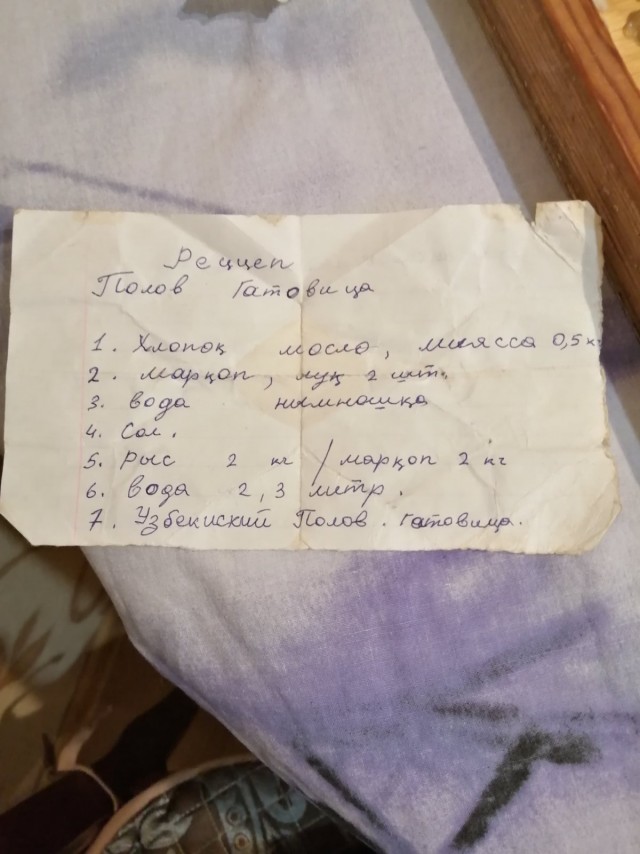 Реццеп
Полов Гатовица
1. Хлопоқ мосло, миясса 0,5 кг
2. марқоп, луқ 2 шт.
3. вода нымношка
4. Сол.
5. рыс 2 кг / марқоп 2 кг
6. вода 2,3 литр.
7. Узбекиский Полов. Гатовица.